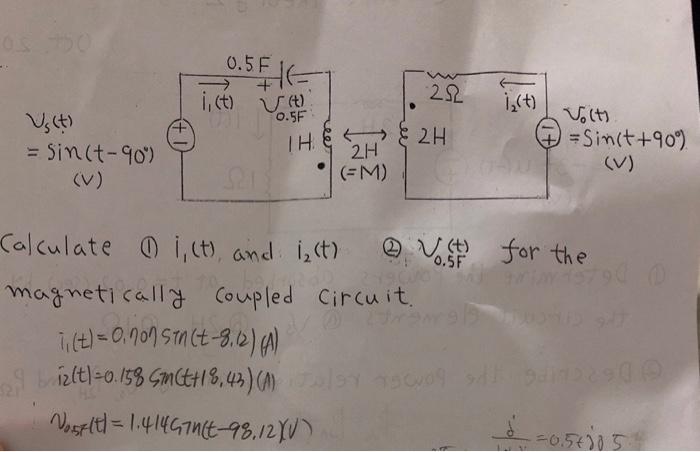 0.5F
+ -
i₁(t) V(t) 0.5F
2Ω i₂(t)
Vs(t) = Sin(t-90°) (V)
1H 2H (=M) 2H
V₀(t) = Sin(t+90°) (V)
Calculate ① i₁(t) and i₂(t) ② V(t) 0.5F for the
magnetically coupled circuit.
i₁(t)=0.707sin(t-8.12)(A)
i₂(t)=0.158 sin(t+18.43)(A)
V0.5F(t)=1.414sin(t-98.12)(V)